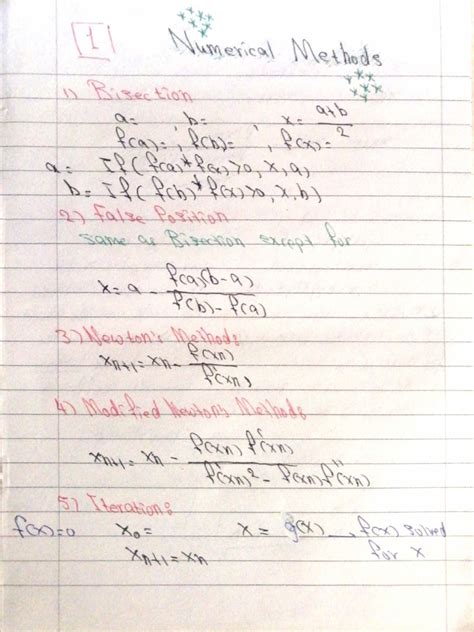 [1] Numerical Methods
1) Bisection
a= , b= , x= a+b/2
f(a)= , f(b)= , f(x)=
a= If( f(a)*f(x)>0, x, a)
b= If( f(b)*f(x)>0, x, b)
2) False Position
same as Bisection except for
x= a - f(a)(b-a)/f(b)-f(a)
3) Newton's Methods
xn+1 = xn - f(xn)/f'(xn)
4) Modified Newton's Methods
xn+1 = xn - f(xn) f'(xn)/f'(xn)² - f(xn) f''(xn)
5) Iterations
f(x)=0 x0= x = g(x) → f(x) solved
xn+1 = xn for x